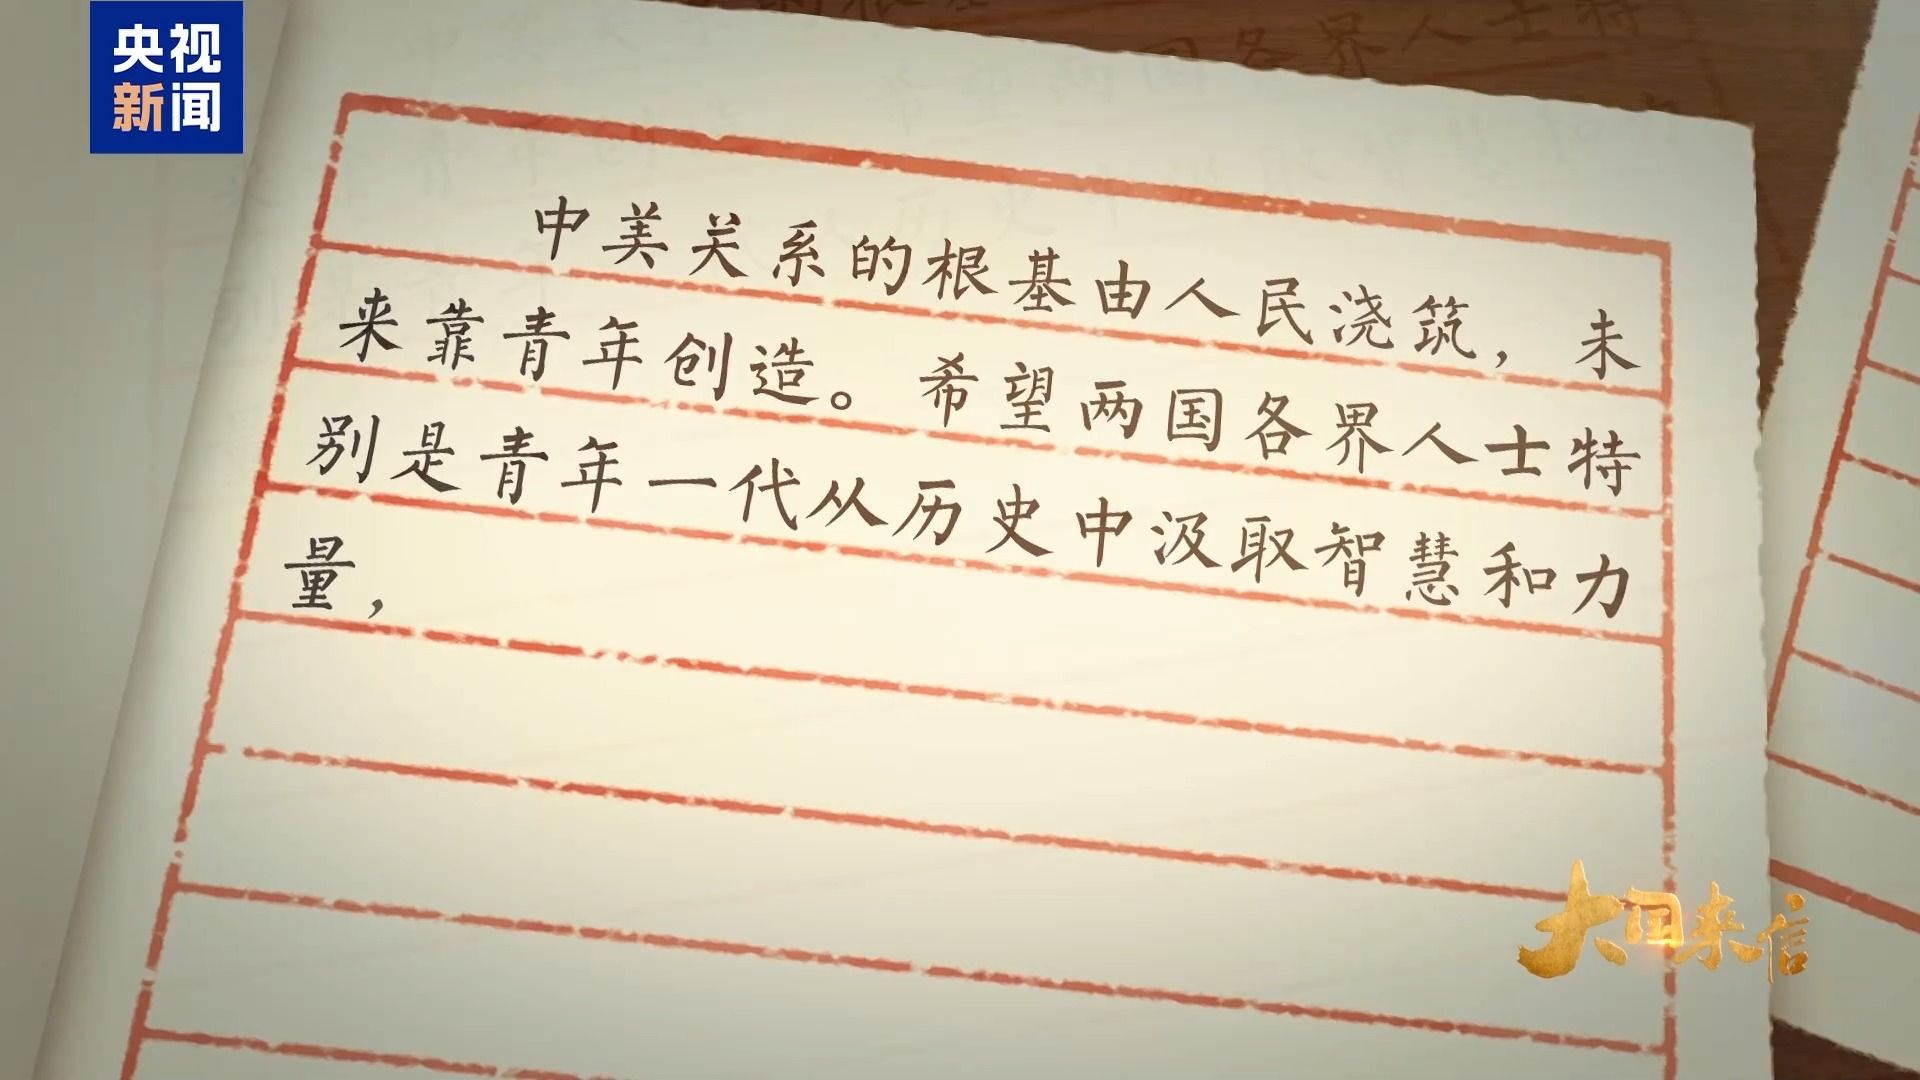 央视
新闻
中美关系的根基由人民浇筑，未
来靠青年创造。希望两国各界人士特
别是青年一代从历史中汲取智慧和力
量，
大国来信